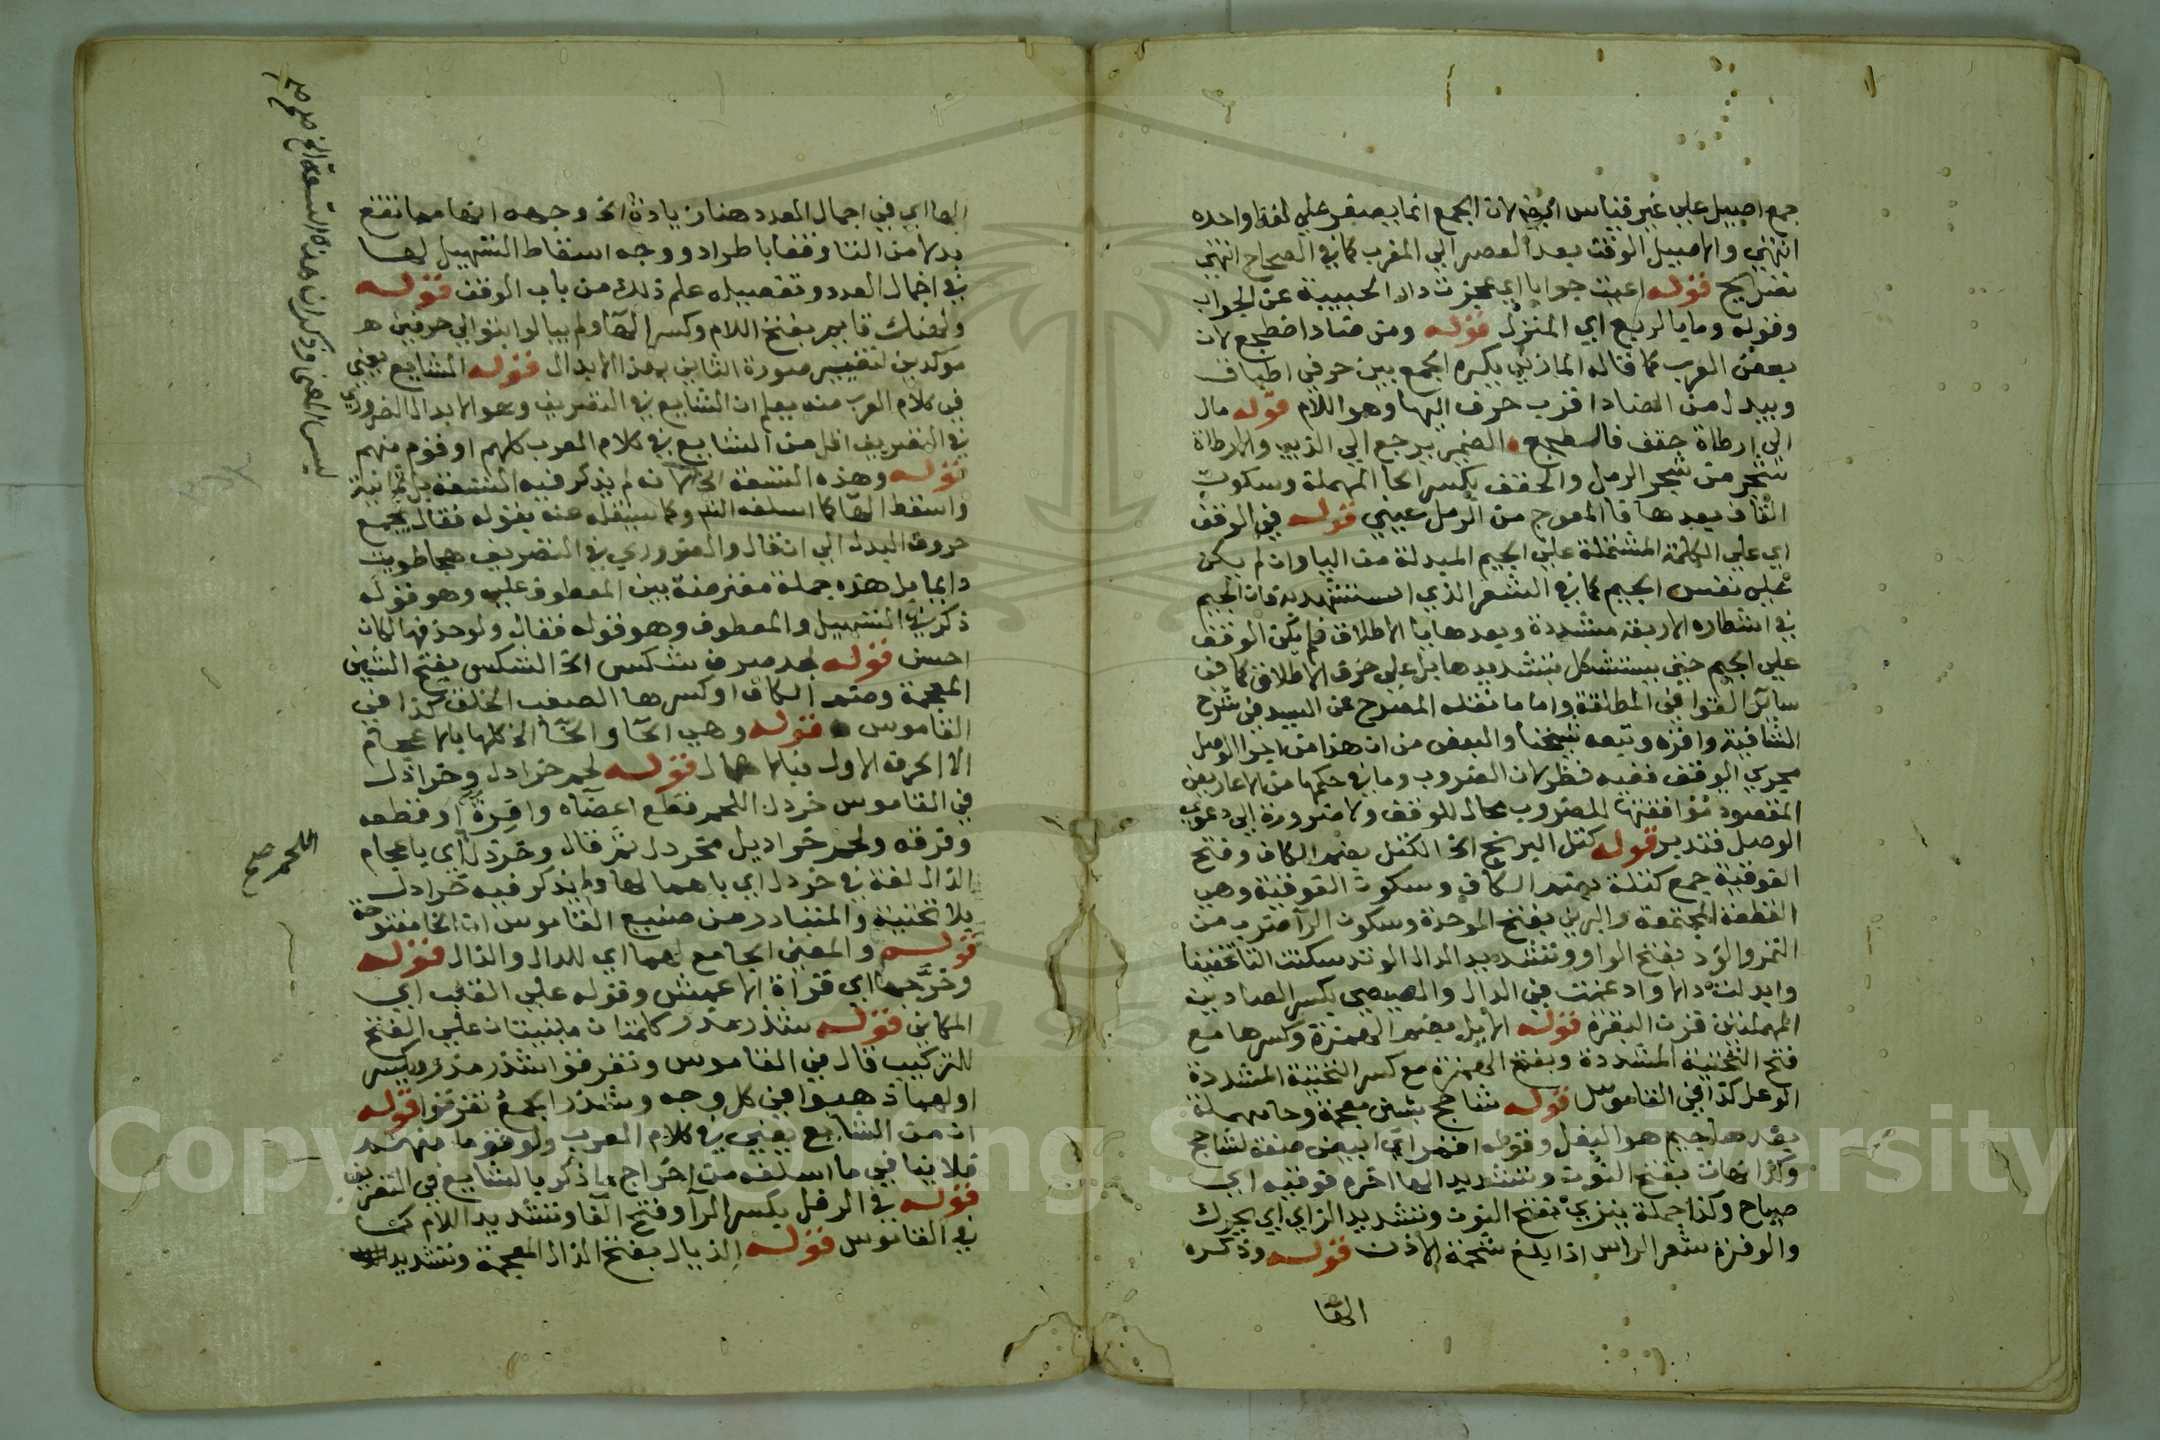 جمع اصيل على غير قياس ايضا لان الجمع انما يصغر على لفظ واحده
انتهى والاصيل الوقت بعد العصر الى المغرب كما في الصحاح انتهى
تصريح قوله اعيت جوابا اي عجزت دار الحبيبة عن الجواب
وقوله وما بالربع اي المنزل قوله ومن ضاد اضطجع لان
بعض العرب كما قاله المازني يكره الجمع بين حرفي اطباق
ويبدل من الضاد اقرب حرف اليها وهو اللام قوله مال
الى ارطاة حقف فالطجع الضمير يرجع الى الذيب والارطاة
شجر من شجر الرمل والحقف بكسر الحا المهملة وسكون
القاف بعدها فا المعوج من الرمل عيني قوله في الوقف
اي على الكلمة المشتملة على الجيم المبدلة من اليا وان لم يكن
على نفس الجيم كما في الشعر الذي استشهد به فان الجيم
في اشطاره الاربعة مشددة وبعدها يا الاطلاق فلم يكن الوقف
على الجيم حتى يستشكل تشديدها بل على حرف الاطلاق كما في
سائر القوافي المطلقة واما ما نقله المصرح عن السيد في شرح
الشافية واقره وتبعه شيخنا والبعض من ان هذا من اجرا الوصل
مجرى الوقف ففيه نظر لان الضروب وما في حكمها من الاعاريض
المقصود موافقتها للضروب محال للوقف ولا ضرورة الى دعوى
الوصل فتدبر قوله كتل البرنج الخ الكتل بضم الكاف وفتح
الفوقية جمع كتلة بضم الكاف وسكون الفوقية وهي
القطعة المجتمعة والبرني بفتح الموحدة وسكون الرا ضرب من
التمر والود بفتح الواو وتشديد الدال الوتد سكنت التا تخفيفا
وابدلت دالا وادغمت في الدال والصيصي بكسر الصادين
المهملتين قرن البقرة قوله الايل بضم الهمزة وكسرها مع
فتح التحتية المشددة وبفتح الهمزة مع كسر التحتية المشددة
الوعل كذا في القاموس قوله شاحج بشين معجمة وحا مهملة
بعدها جيم هو البغل وقوله اقمر اي ابيض صفة لشاحج
وكذا نهات بفتح النون وتشديد الها اخره فوقية اي
صياح وكذا جملة ينزي بفتح النون وتشديد الزاي اي يحرك
والوفرة شعر الراس اذا بلغ شحمة الاذن قوله وذكره
الها
الها اي في اجمال العدد هنا زيادة الخ وجهه انها مما تقع
بدلا من التا وقفا باطراد ووجه اسقاط التسهيل لها
في اجمال العدد وتفصيله علم ذلك من باب الوقف قوله
ولهنك قايم بفتح اللام وكسر الها ولم يبالوا بتوالي حرفين
موكدين لتغيير صورة الثاني بهذا الابدال قوله الشايع يعني
في كلام العرب منه يعلم ان الشايع في التصريف وهو الابدال الضروري
في التصريف اقل من الشايع في كلام العرب كلهم او قوم منهم
قوله وهذه التسعة الخ لانه لم يذكر فيه التسعة بل ثمانية
واسقط الها كما اسلفه الش وكما سينقله عنه بقوله فقال يجمع
حروف البدل الى ان قال والضروري في التصريف هجا طويت
دايما بل هذه جملة معترضة بين المعطوف عليه وهو قوله
ذكر في التسهيل والمعطوف وهو قوله فقال ولو حذفها لكان
احسن قوله لجد صرف شكس الخ الشكس بفتح الشين
المعجمة وضم الكاف او كسرها الصعب الخلق كذا في
القاموس قوله وهي الحا والخا الخ كلها بالاعجام
الا الحرف الاول فبالاهمال قوله لحم خرادل وخراذل
في القاموس خردل اللحم قطع اعضآه وافرة او قطعه
وفرقه ولحم خراديل مخردل ثم قال وخرذل اي باعجام
الذال لغة في خردل اي باهمالها ولم يذكر فيه خرادل
بلا تحتية والمتبادر من صنيع القاموس ان الخا مفتوحة
قوله والمعنى الجامع لهما اي للدال والذال قوله
وخرجها اي قراة الاعمش وقوله على القلب اي
المكاني قوله شذر مذر كلمتان مبنيتان على الفتح
للتركيب قال في القاموس وتفرقوا شذر مذر ويكسر
اولهما ذهبوا في كل وجه وتشذر الجمع تفرقوا قوله
ان من الشايع يعني في كلام العرب ولو قوما منهم
فلا ينافي ما اسلفه من اخراج ما ذكر بالشايع في التصريف
قوله في الرفل بكسر الرا وفتح الفا وتشديد اللام كما
في القاموس قوله الذيال بفتح الذال المعجمة وتشديد
ليس المعنى وذكر ان هذه التسعة الخ صح صح
اللحم صح
Copyright © King Saud University
1957